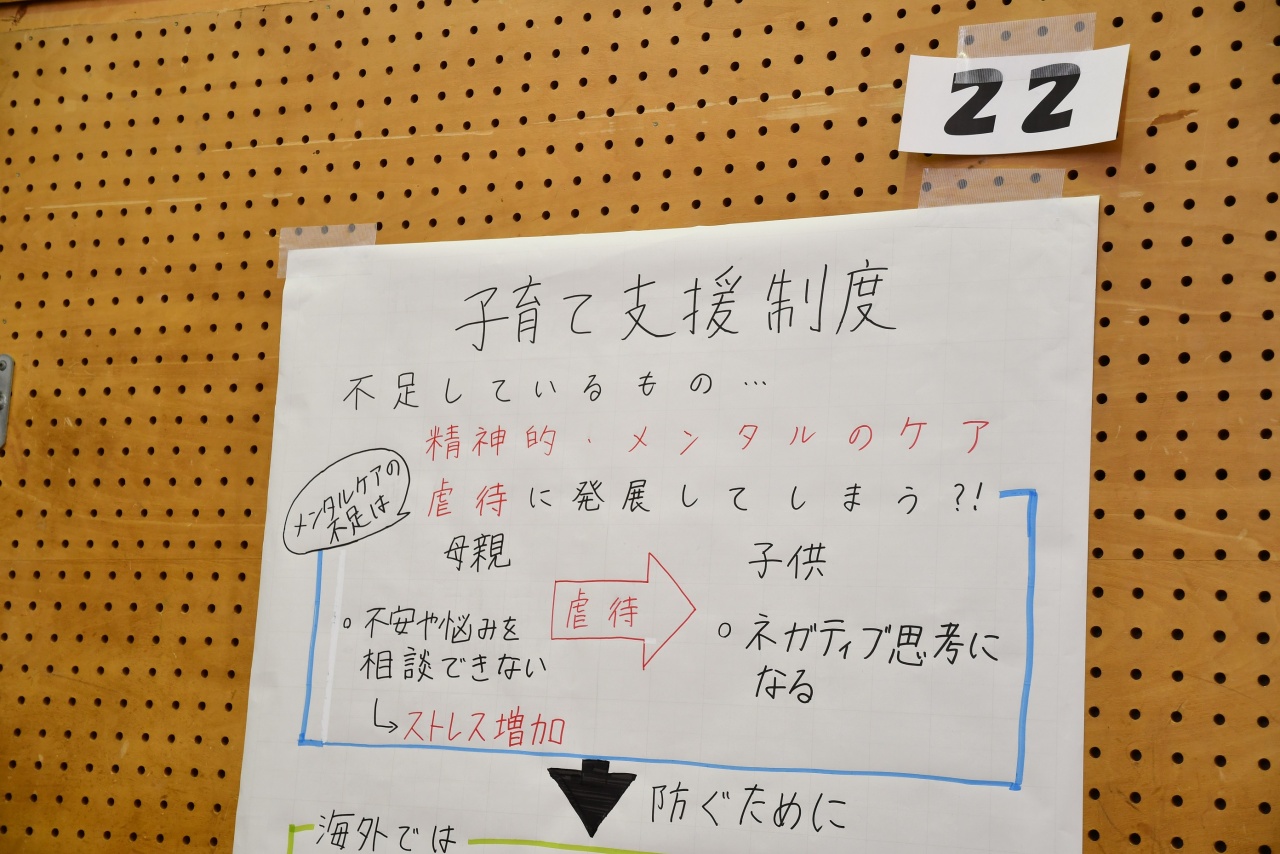 22
子育て支援制度
不足しているもの…
精神的・メンタルのケア
メンタルケアの
不足は
虐待に発展してしまう?!
母親
虐待
子供
○不安や悩みを
相談できない
↳ストレス増加
○ネガティブ思考に
なる
防ぐために
海外では